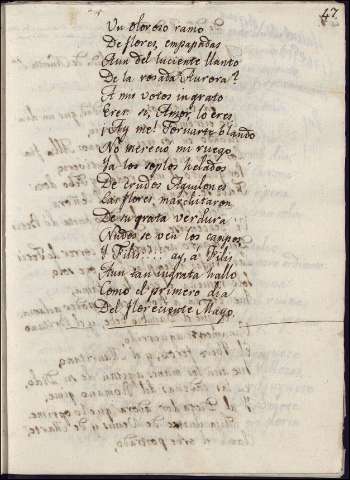 47.
Un oloroso ramo
De flores, empapadas
Aun del luciente llanto
De la rosada Aurora?
A mis votos ingrato
Eres si, Amor, lo eres
¡Ay me! Tornarte blando
No mereció mi ruego.
Ya los soplos helados
De crudos Aquilones
Las flores marchitaron,
De su grata verdura
Nudos se ven los campos
Y Filis.... ay, á Filis
Aun tan ingrata hallo
Como el primero dia
Del floreciente Mayo.